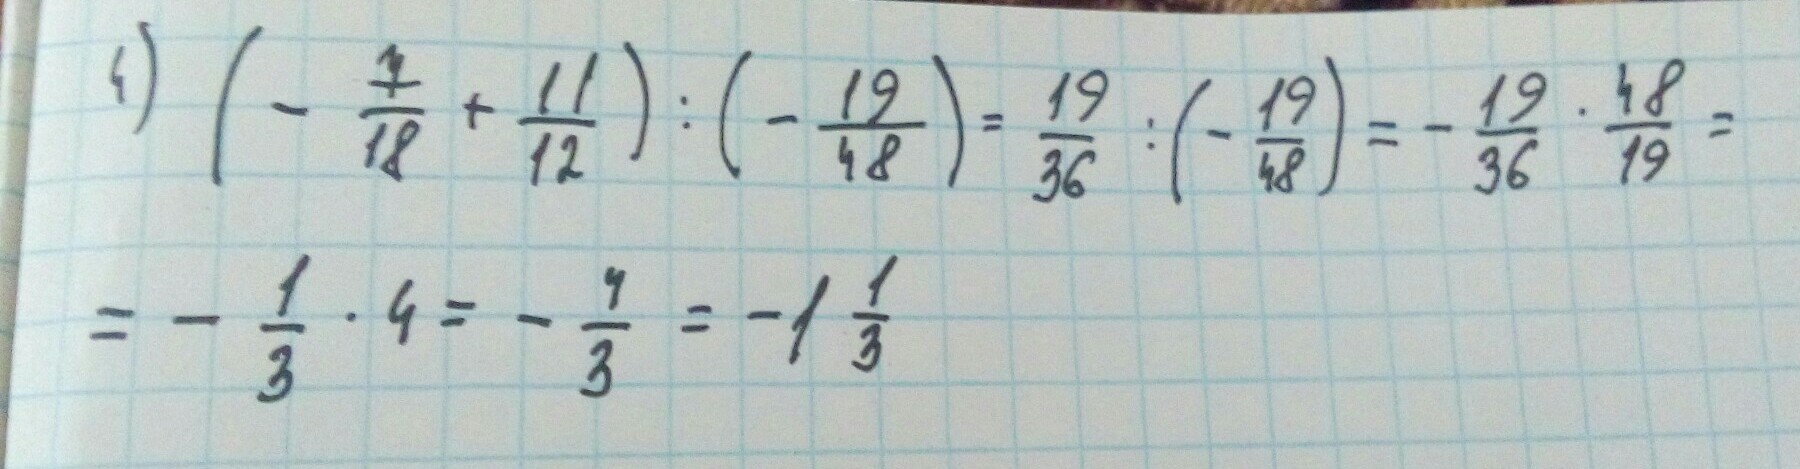 4) (- 7/18 + 11/12) : (- 19/48) = 19/36 : (- 19/48) = - 19/36 · 48/19 =
= - 1/3 · 4 = - 4/3 = -1 1/3